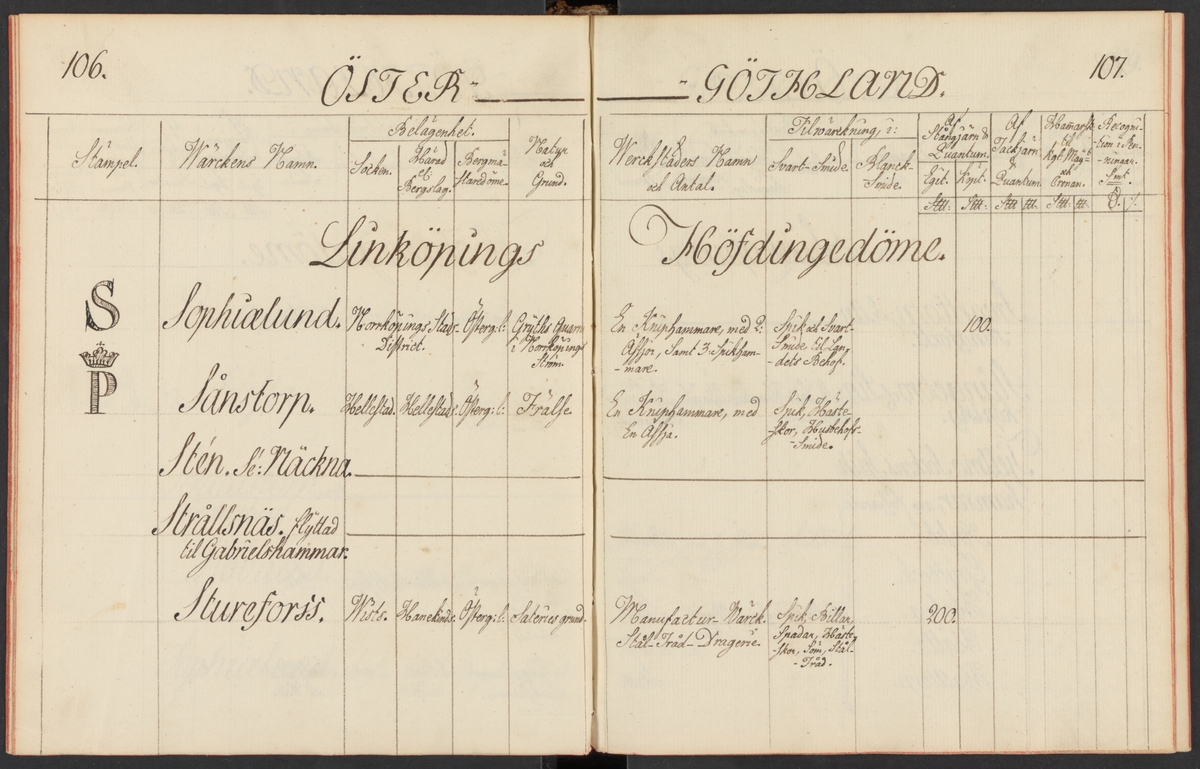 106.
ÖSTER- — - GÖTHLAND.
107.
Stämpel.
Wärckens Namn.
Belägenhet.
Socken.
Härad
et
Bergslag.
Bergmä-
staredöme.
Natur
och
Grund.
Werckstädens Namn
och Antal.
Tilwärckning i:
Svart-Smide.
Blanck-
Smide.
Af
Stångjärn &
Quantum.
Egit.
Köpt.
Af
Tackjärn
&
Quantum.
Hamarsk.
til
Kgl. Maj:t
och
Cronan.
Recogni-
tion i Pen-
ningar.
Smt.
Stt:
Stt:
Stt
tt.
Stt:
tt.
Linköpings Höfdingedöme.
S
Sophiælund.
Norrköpings Stads
District.
Österg: l:
Gryths Quarn
i Norrköpings
Ström.
En Kniphammare, med 2:
Ässjor, Samt 3: Spikham-
-mare.
Spik och Svart-
Smide til Lan-
-dets Behof.
100.
P
Sånstorp.
Hellestad.
Hellestads.
Österg: l:
Frälse.
En Kniphammare, med
En Ässja.
Spik, Häste-
-skor, Husbehofs-
-Smide.
Stén. Se: Näckna.
Strållsnäs. flyttad
til Gabrielshammar.
Stureforss.
Wists.
Hanekinds.
Österg: l:
Säteries grund.
Manufactur-Wärck.
Stål-Tråd-Dragerie.
Spik, Billar,
Spadar, Häste-
-skor, Söm, Stål-
-Tråd.
200.